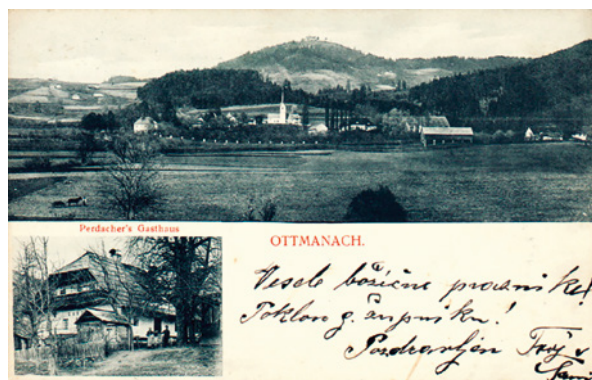 Perdacher's Gasthaus
OTTMANACH.
Vesele božične praznike!
Poklon g. župniku!
Pozdravljen Tvoj